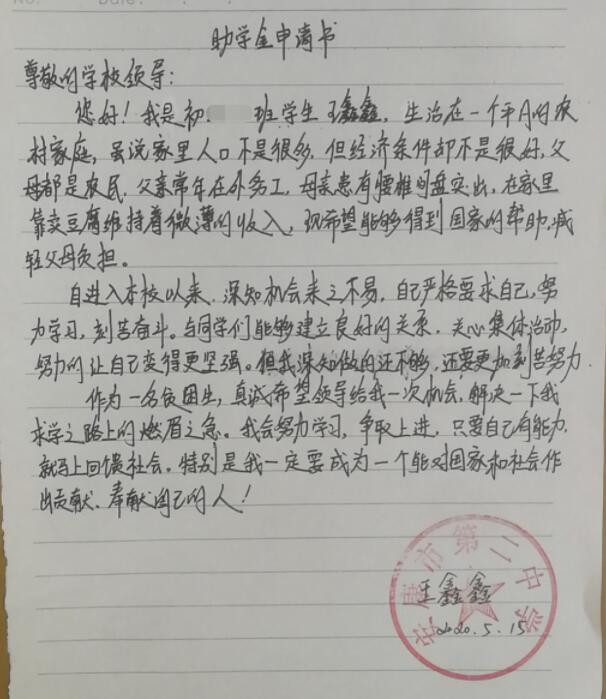 No. Date.
助学金申请书
尊敬的学校领导：
您好！我是初 班学生王鑫鑫，生活在一个平凡的农
村家庭，虽说家里人口不是很多，但经济条件却不是很好，父
母都是农民，父亲常年在外务工，母亲患有腰椎间盘突出，在家里
靠卖豆腐维持着微薄的收入，现希望能够得到国家的帮助，减
轻父母负担。
自进入本校以来，深知机会来之不易，自己严格要求自己，努
力学习，刻苦奋斗。与同学们能够建立良好的关系，关心集体活动，
努力的让自己变得更坚强。但我深知做的还不够，还要更加刻苦努力．
作为一名贫困生，真诚希望领导给我一次机会，解决一下我
求学之路上的燃眉之急。我会努力学习，争取上进，只要自己有能力，
就马上回馈社会，特别是我一定要成为一个能对国家和社会作
出贡献，奉献自己的人！
安康市第二中学
王鑫鑫
2020.5.15